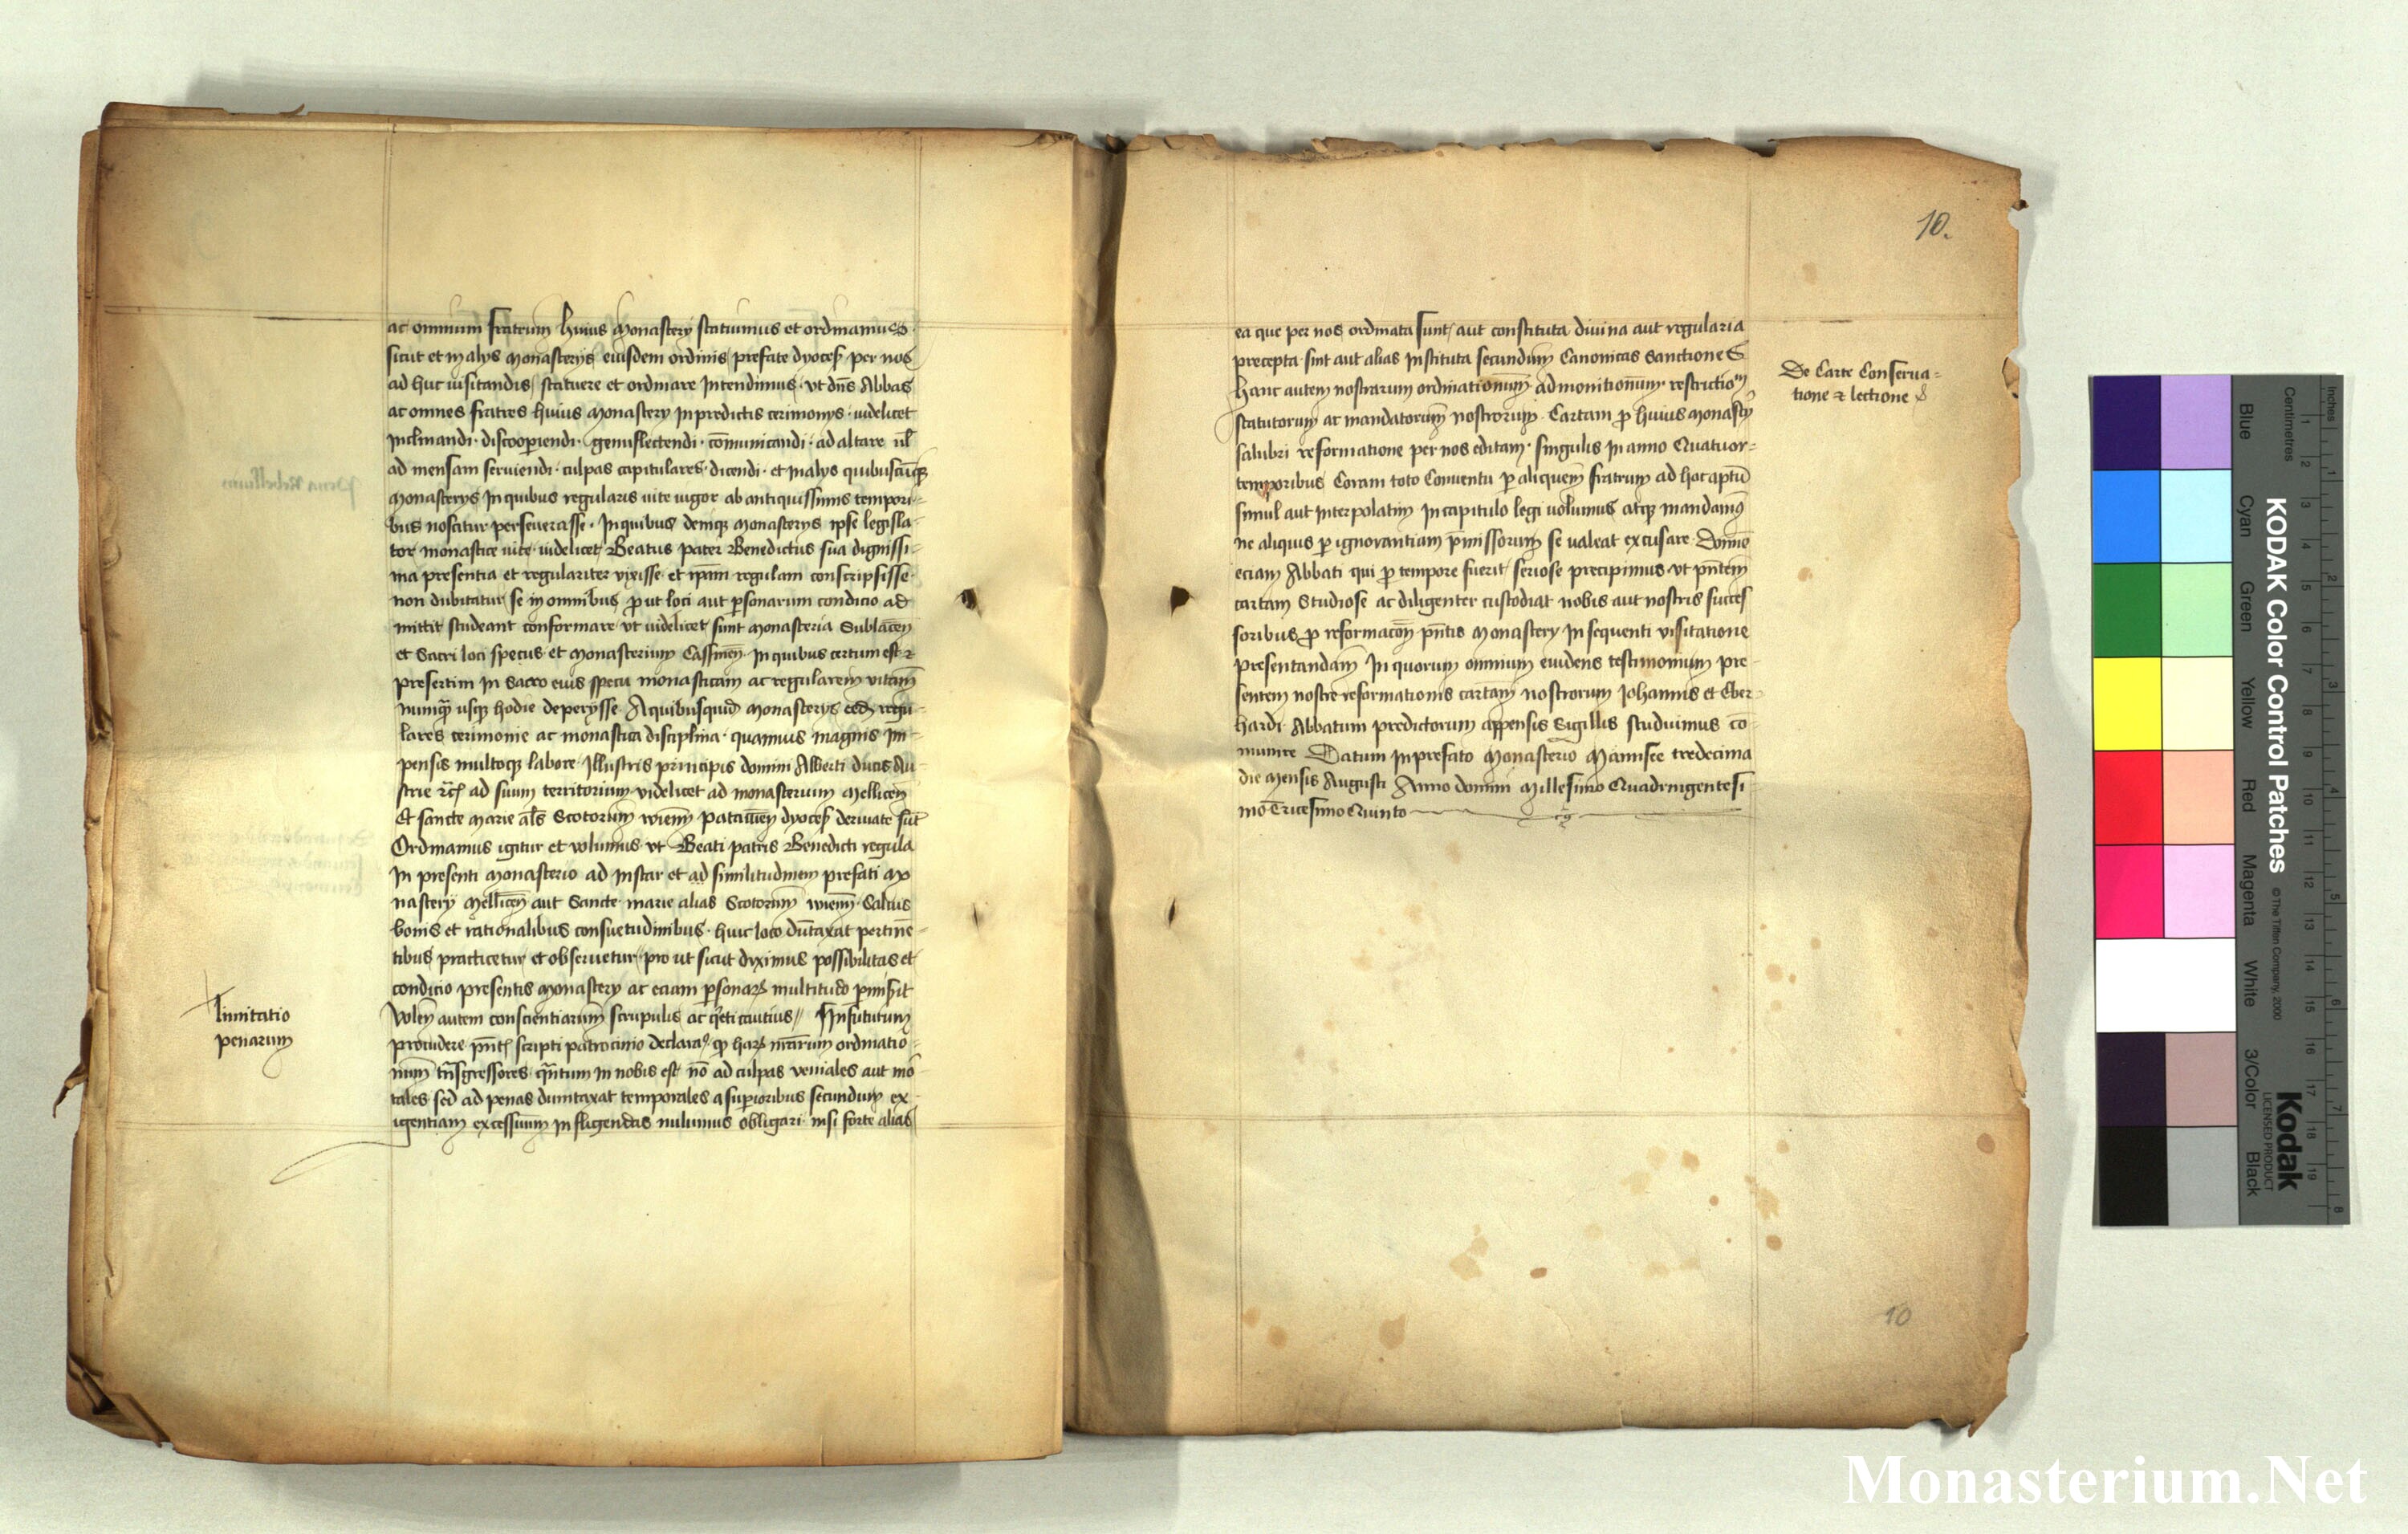 ac omnium fratrum huius monastery statuimus et ordinamus
sicut et in alys monasterys eiusdem ordinis prefate dyoces per nos
ad huc uisitandis statuere et ordinare intendimus vt dns Abbas
ac omnes fratres huius monastery in predictis cerimonys uidelicet
Inclinandi discooperiendi genuflectendi comunicandi ad altare ul
ad mensam seruiendi culpas capitulares dicendi et in alys quibuscuqz
monasterys in quibus regularis uite uigor ab antiquissimis tempori-
bus noscitur perseuerasse In quibus deniqz monasterys ipse legisla-
tor monastice uite uidelicet Beatus pater Benedictus sua dignissi-
ma presentia et regulariter vixisse et ipam regulam conscripsisse
non dubitatur se in omnibus prout loci aut psonarum condicio ad
mittit studeant conformare vt uidelicet sunt monasteria Sublacen
et Sacri loci specus et monasterium Cassinen In quibus certum est
presertim in Sacro eius specu monasticam ac regularem vitam
nunqz usqz hodie deperysse A quibusquid monasterys regu-
lares cerimonie ac monastica disciplina quamuis magnis im-
pensis multoqz labore Illustris principis domini Alberti ducis Au-
strie ad suum territorium videlicet ad monasterium Mellicen
Et sancte Marie als Scotorum wienn patauien dyoces deriuate sut
Ordinamus igitur et volumus vt Beati patris Benedicti regula
In presenti monasterio ad instar et ad similitudinem prefati mo
nastery Mellicen aut Sancte marie alias Scotorum wienn Saluis
bonis et rationalibus consuetudinibus huic loco dutaxat pertine-
tibus practicetur et obseruetur prout sicut diximus possibilitas et
condicio presentis monastery ac eciam psonarz multitudo
Volen autem conscientiarum scrupulis ac cautius In futurum
prouidere scripti patrocinio harz nrarum ordinatio-
num tnsgressores qntum in nobis est no ad culpas veniales aut mo
tales sed ad penas dumtaxat temporales a supioribus secundum ex
igentiam excessuum infligendas uolumus obligari nisi forte alias
limitatio
penarum
10.
ea que per nos ordinata sunt aut constituta diuina aut regularia
precepta sint aut alias instituta secundum Canonicas Sanctiones
hanc autem nostrarum ordinationum admonitionum restrictiom
statutorum ac mandatorum nostrorum Cartam p huius monastery
salubri reformatione per nos editam singulis in anno Quatuor-
temporibus Coram toto Conuentu p aliquem fratrum ad hoc aptu
simul aut interpolatim in capitulo legi uolumus atqz mandamus
ne aliquis p ignorantiam pmissorum se ualeat excusare Domno
eciam Abbati qui p tempore fuerit seriose precipimus vt pntem
cartam Studiose ac diligenter custodiat nobis aut nostris succes
soribus p reformacon pntis monastery in sequenti visitatione
presentandam In quorum omnium euidens testimonium pre-
sentem nostre reformationis cartam nostrorum Johannis et Eber-
hardi Abbatum predictorum appensis Sigillis studuimus co-
munire Datum in prefato monasterio Mannsee tredecima
die mensis Augusti Anno domini Millesimo Quadringentesi
mo Tricesimo Quinto
De Carte Conserua-
tione et lectione
10
Inches
Centimetres
KODAK Color Control Patches
© The Tiffen Company, 2000
Kodak
LICENSED PRODUCT
Blue
Cyan
Green
Yellow
Red
Magenta
White
3/Color
Black
Monasterium.Net